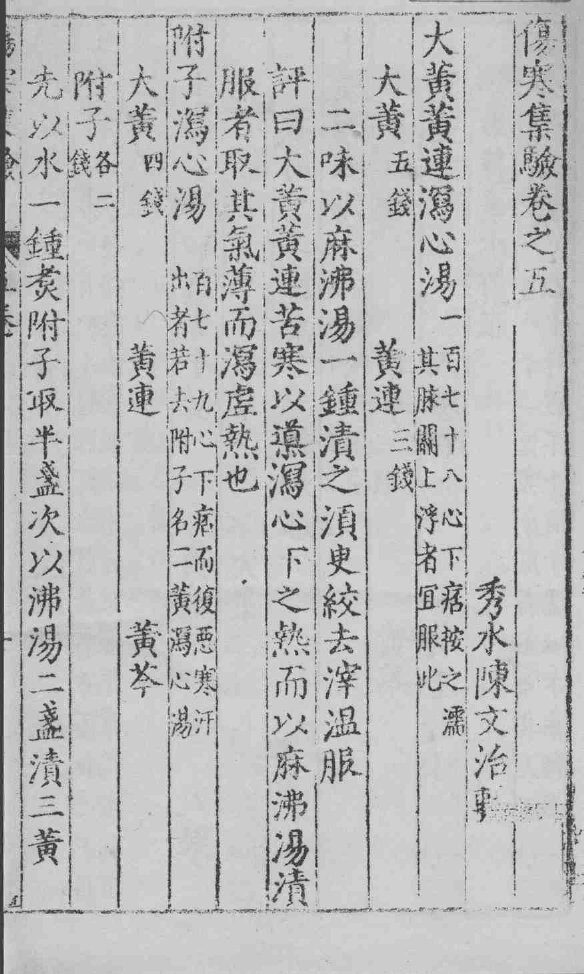 傷寒集驗卷之五
秀水陳文治
大黃黃連瀉心湯 一百七十八心下痞按之濡其脉關上浮者宜服此
大黃 五錢 黃連 三錢
二味以麻沸湯一鍾漬之須臾絞去滓温服
評曰大黃黃連苦寒以導瀉心下之熱而以麻沸湯漬
服者取其氣薄而瀉虛熱也
附子瀉心湯 百七十九心下痞而復惡寒汗出者若去附子名二黃瀉心湯
大黃 四錢 黃連 黃芩
附子 各二錢
先以水一鍾煑附子取半盞次以沸湯二盞漬三黃